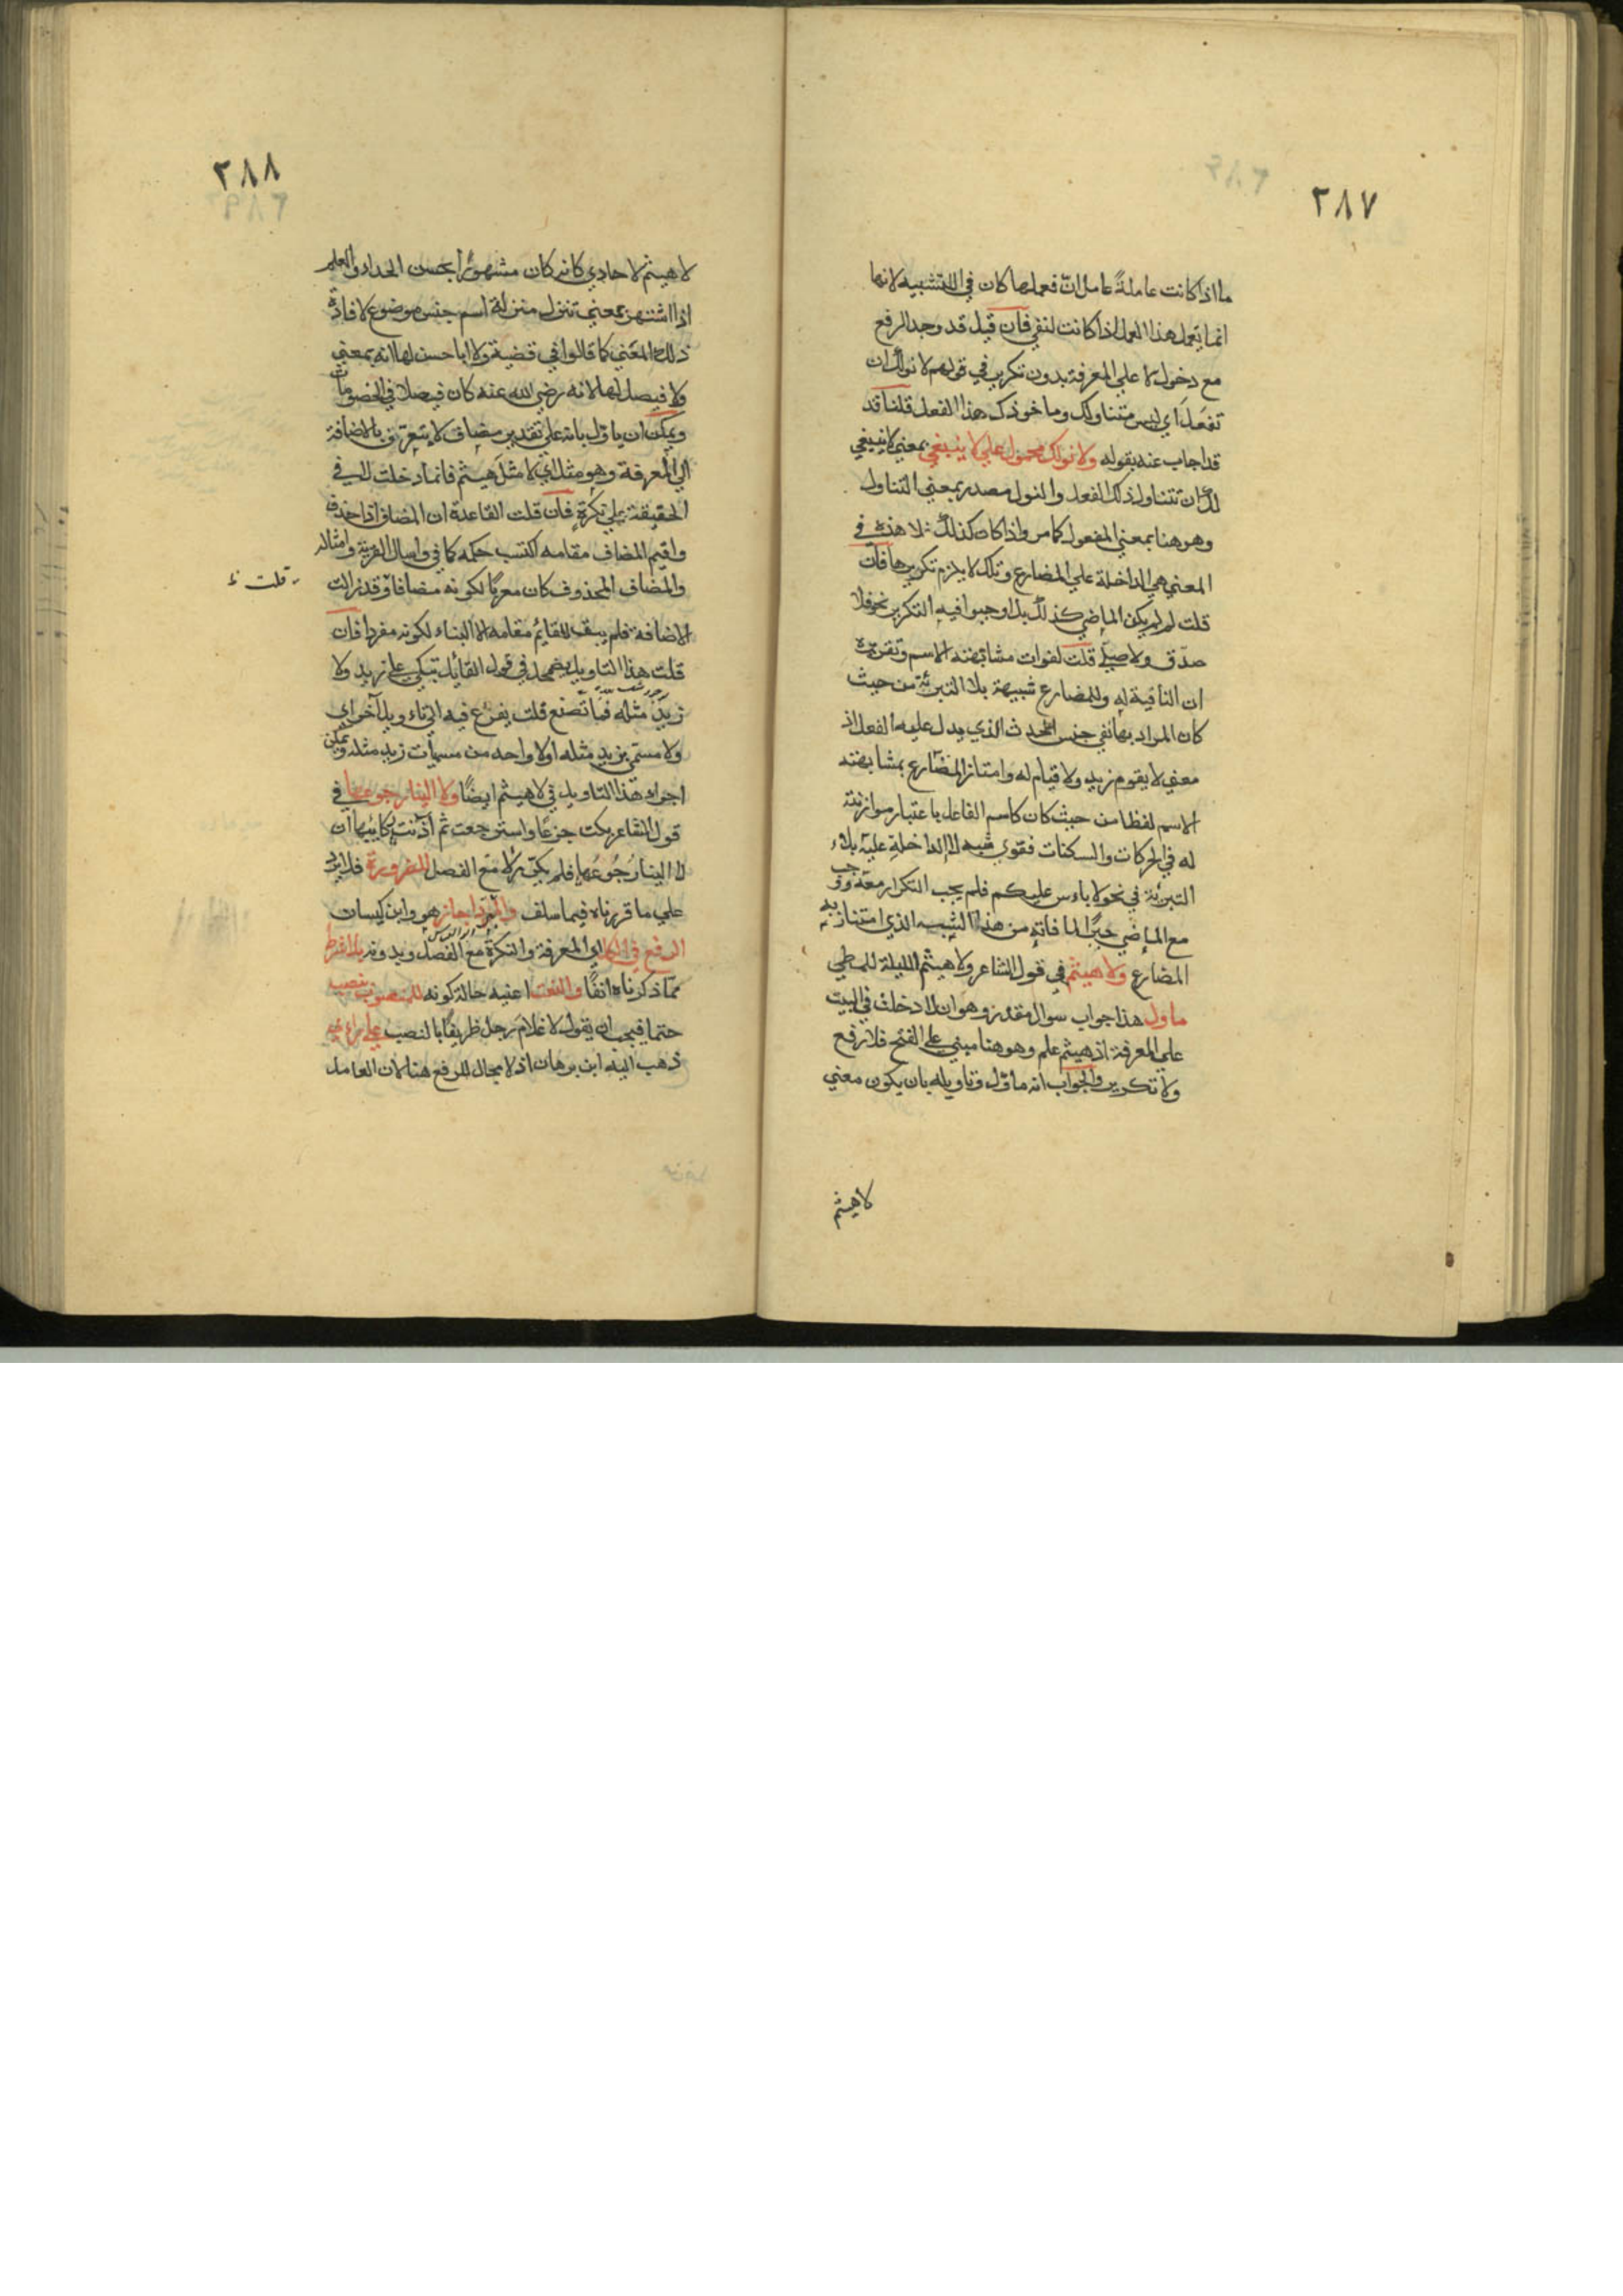 ٢٨٧
ما اذا كانت عاملةً عامل انّ فعملها كان في التشبيه لانها
انما تعمل هذا العمل اذا كانت لنفي فان قيل قد وجد الرفع
مع دخول لا علي المعرفة بدون تكرير في قولهم لا نولك ان
تفعل اي ليس متناولك وماخوذك هذا الفعل قلنا قد
قد اجاب عنه بقوله ولا نولك محمول علي لا ينبغي بمعني لا ينبغي
لك ان تتناول ذلك الفعل والنول مصدر بمعني التناول
وهو هنا بمعني المفعول كما مر واذا كان كذلك فلا هذه في
المعني هي الداخلة علي المضارع وتلك لا يلزم تكريرها فان
قلت لم لم يكن الماضي كذلك بل اوجبوا فيه التكرير نحو فلا
صدّق ولا صلّي قلت لفوات مشابهته الاسم وتقريره
ان النافية له وللمضارع شبيهة بلا التبرئة من حيث
كان المراد بها نفي جنس الحدث الذي يدل عليه الفعل اذ
معني لا يقوم زيد ولا قيام له وامتاز المضارع بمشابهته
الاسم لفظا من حيث كان كاسم الفاعل باعتبار موازنته
له في الحركات والسكنات فقوي شبه لا الداخلة عليه بلاء
التبرئة في نحو لا باس عليكم فلم يجب التكرار معه ووجب
مع الماضي جبرًا لما فاته من هذا الشبه الذي امتاز به
المضارع ولا هيثم في قول الشاعر ولا هيثم الليلة للمطي
ماول هذا جواب سوال مقدر وهو ان لا دخلت في البيت
علي المعرفة اذ هيثم علم وهو هنا مبني علي الفتح فلا رفع
ولا تكرير والجواب انه ماوّل وتاويله بان يكون معني
لا هيثم
٢٨٨
لا هيثم لا حادي كانه كان مشهورًا بحسن الحداء والعلم
اذا اشتهر بمعني تنزل منزلة اسم جنس موضوع لافادة
ذلك المعني كما قالوا في قضية ولا ابا حسن لها انه بمعني
ولا فيصل لها لانه رضي الله عنه كان فيصلا في الخصومات
ويمكن ان ياول بانه علي تقدير مضاف لا يتعرّف بالاضافة
الي المعرفة وهو مثل اي لا مثل هيثم فانما دخلت لا في
الحقيقة علي نكرة فان قلت القاعدة ان المضاف اذا حذف
واقيم المضاف مقامه اكتسب حكمه كما في واسال القرية وامثاله
قلت ظ
والمضاف المحذوف كان معربًا لكونه مضافا وقد زالت
الاضافة فلم يبق للقايم مقامه الا البناء لكونه مفردا فان
قلت هذا التاويل يضمحل في قول القائل تبكي علي زيد ولا
زيدَ مثله فما تصنع قلت يفزع فيه الي تاويل آخر اي
ولا مسمي بزيد مثله او لا واحد من مسميات زيد مثله ويمكن
اجراء هذا التاويل في لا هيثم ايضًا ولا الينا رجوعها في
قول الشاعر بكت جزعًا واسترجعت ثم آذنت ركائبها ان
لا الينا رجُوعُها فلم يكرّر لا مع الفصل للضرورة فلا يرد
علي ما قررناه فيما سلف والمبرّد اجاز هو وابن كيسان
الرفع في المعرفة والنكرة مع الفصل وبدونه
مما ذكرناه انفًا والنعت اعنيه حالة كونه للمنصوب نصب
حتما فيجب ان يقول لا غلامَ رجل ظريفًا بالنصب علي
ذهب اليه ابن برهان اذ لا مجال للرفع هنا لان العامل